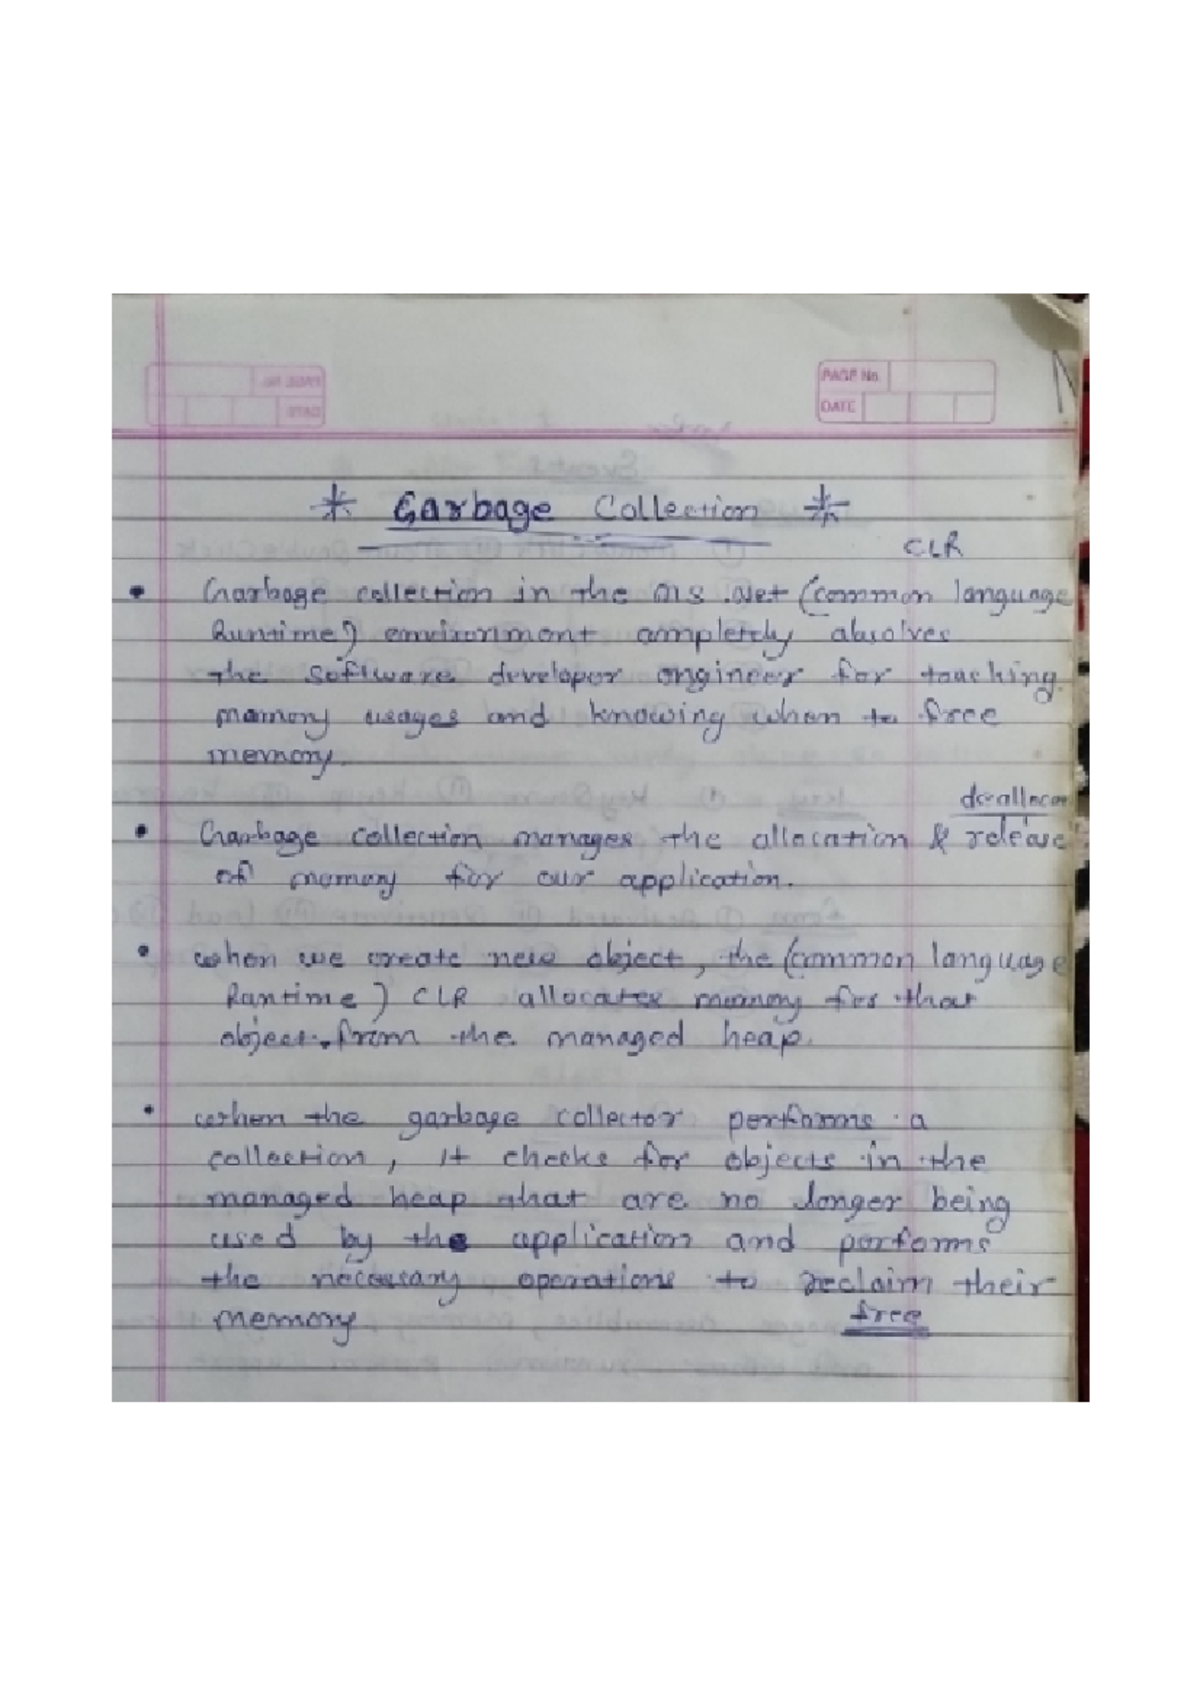 PAGE No.
DATE
* Garbage Collection *
CLR
• Garbage collection in the MS .Net (common language
Runtime) environment completely absolves
the software developer engineer for
memory usages and knowing when to free
memory.
de-alloca
• Garbage collection manages the allocation & release
of memory for our application.
• when we create new object, the (common language
Runtime) CLR allocates memory for that
object from the managed heap.
• when the garbage collector performs a
collection, it checks for objects in the
managed heap that are no longer being
used by the application and performs
the necessary operations to reclaim their
memory
free